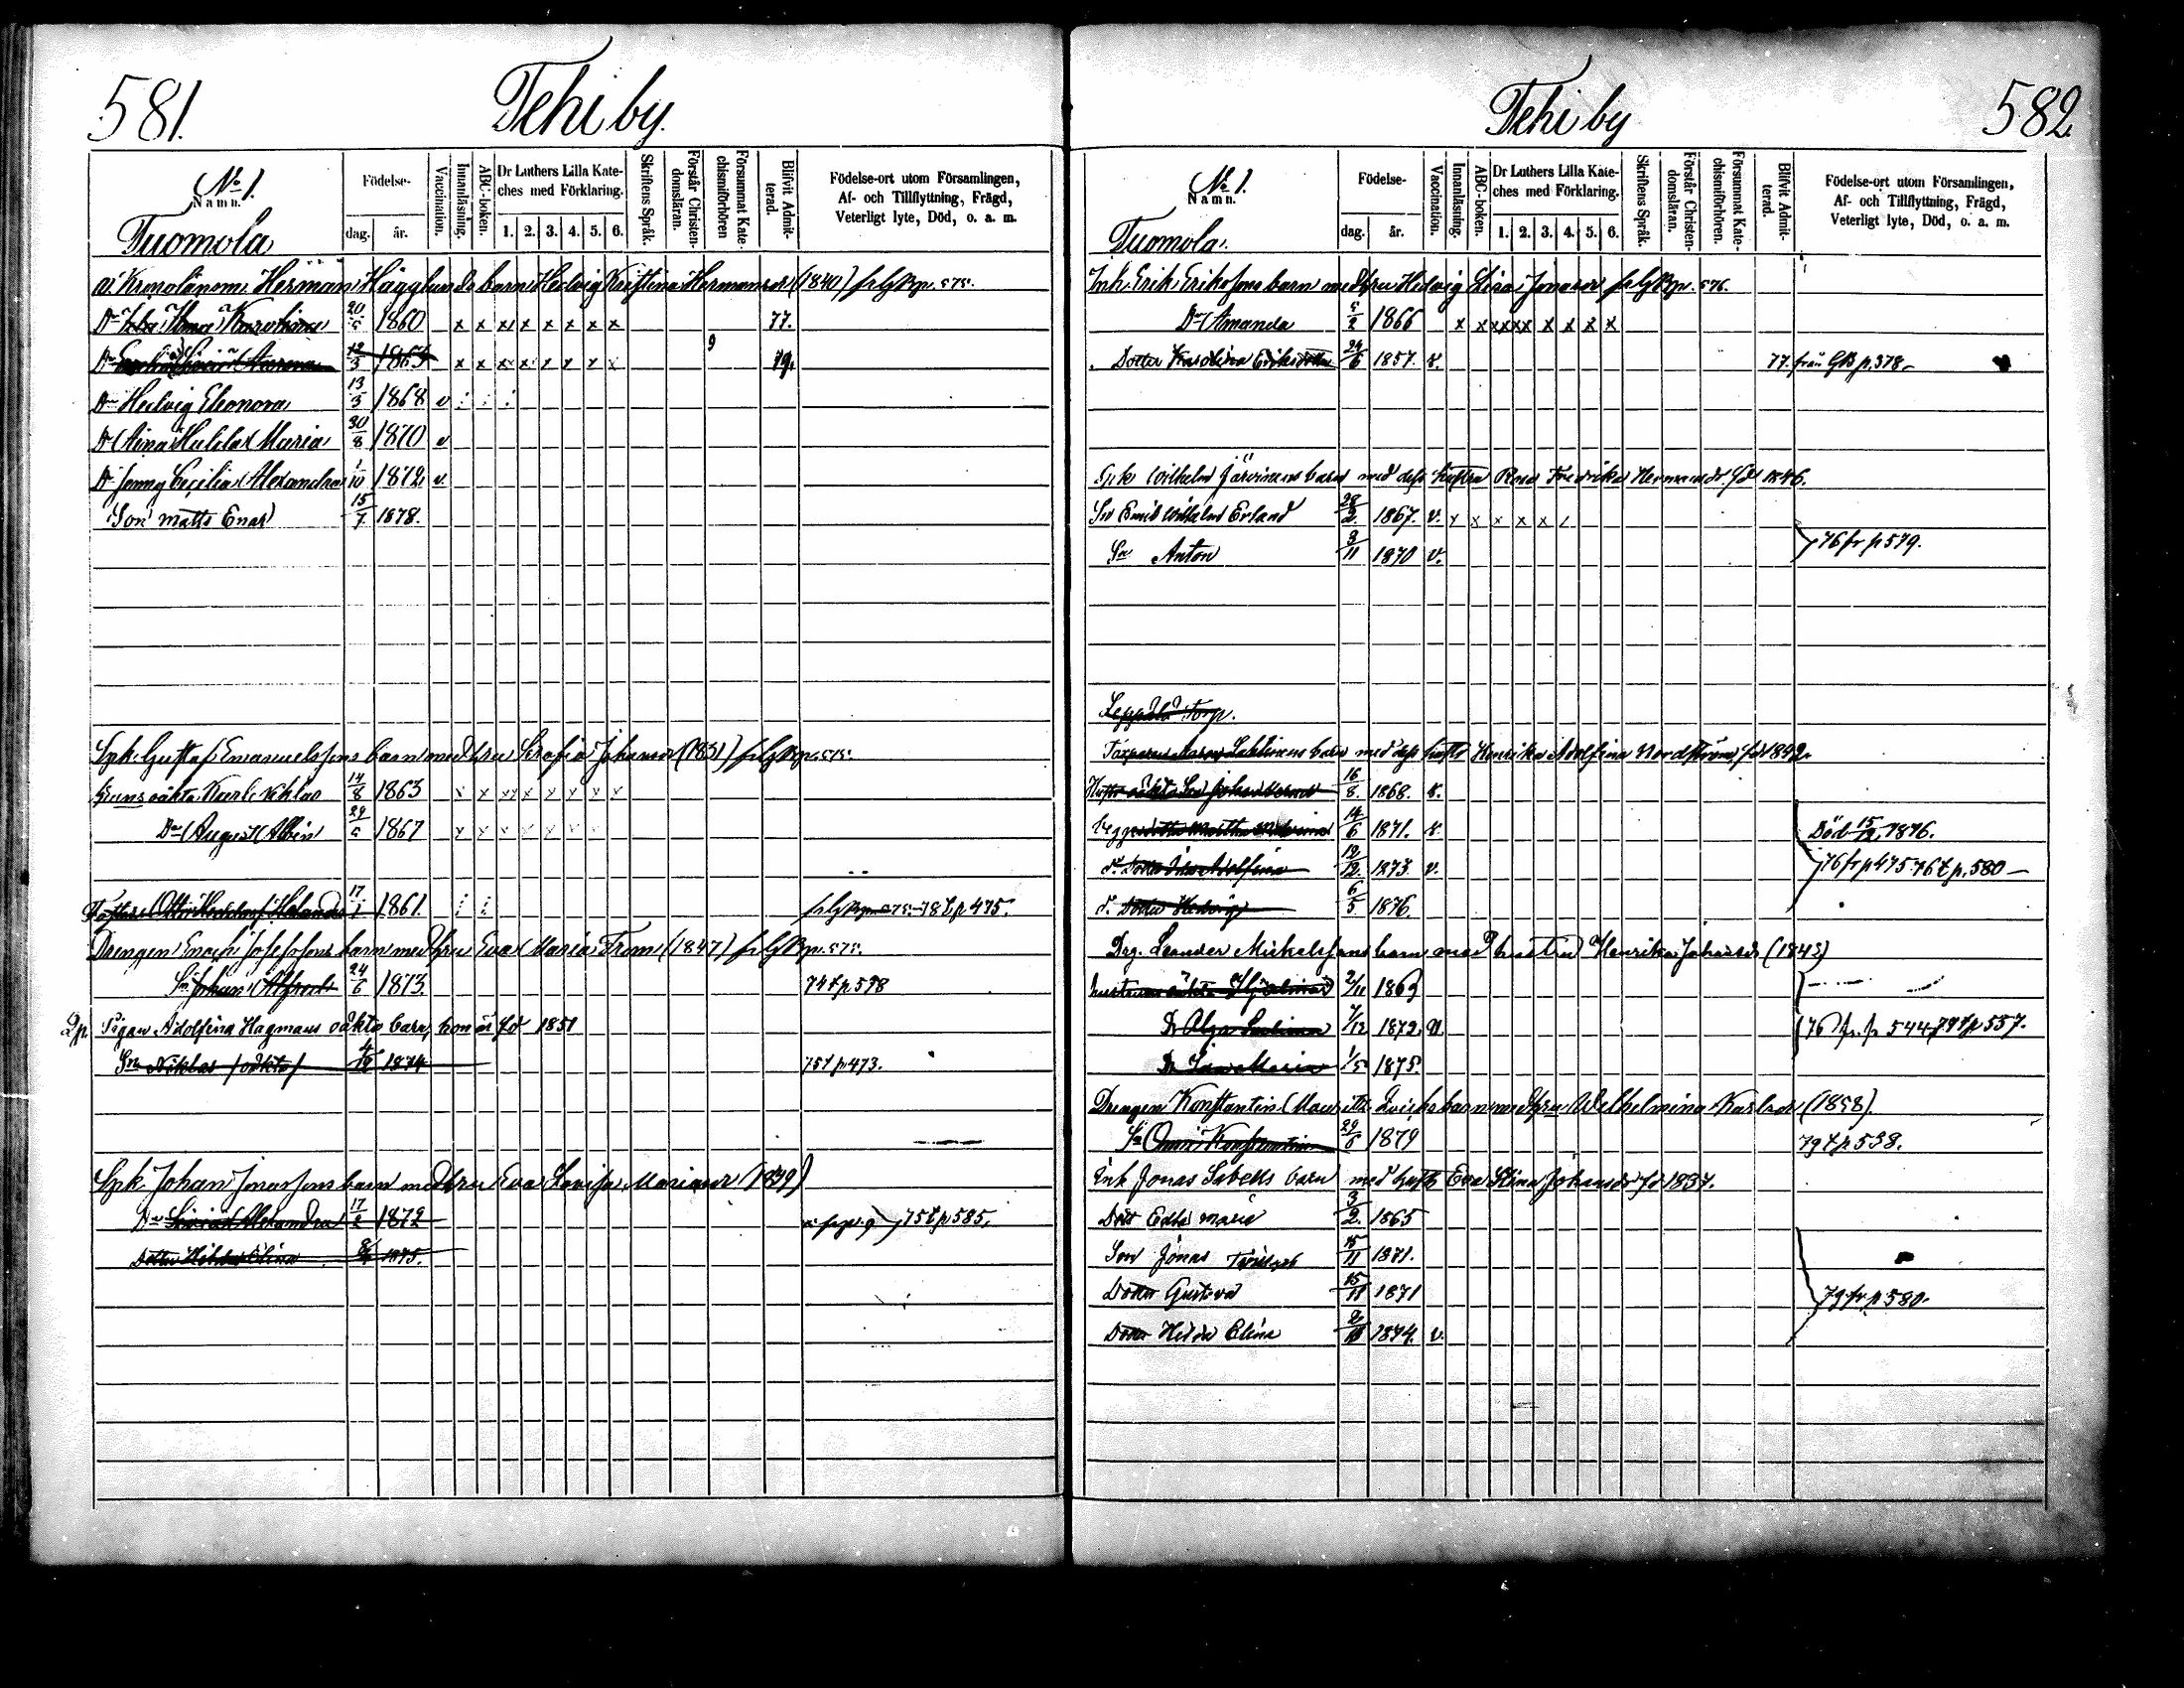 581.
Tehi by.
No 1.
Namn.
Tuomola
Födelse-
dag.
år.
Vaccination.
Innanläsning.
ABC-boken.
Dr Luthers Lilla Kate-
ches med Förklaring.
1. 2. 3. 4. 5. 6.
Skriftens Språk.
Förstår Christen-
domsläran.
Försummat Kate-
chismiförhören
Blifvit Admit-
terad.
Födelse-ort utom Församlingen,
Af- och Tillflyttning, Frägd,
Veterligt lyte, Död, o. a. m.
Herman Hägglunds barn Hedvig Kristina Hermansdr (1840) p. 575.
Dr Karolina 20/5 1860 x x x x x x x x 77.
Dr 12/3 x x x x x x x x 9 79.
Dr Hedvig Eleonora 13/3 1868 v
Dr Aina Hulda Maria 30/8 1870 v
Dr Jenny Cecilia Alexandra 1/10 1872 v.
Son Matts Enar 15/7 1878.
Gustaf Emanuelssons barn med hru Serafia Johansdr (1831) p. 575.
oäkta Karl Niklas 14/8 1863 x x x x x x x x
Dn August Albin 29/5 1867 x x x x x x x
Otto Helander 17/1 1861. 78 t p 475.
Drengen Enoch Josefssons barn med hru Eva Maria From (1847) p. 575.
Sn Johan Alfred 24/6 1873. 74 t p 538
Pigan Adolfina Hagmans oäkta barn, hon är fd 1851
Sn Niklas /oäkta/ 1874 75 t p 473.
Johan Jonassons barn med hru Eva Lovisa Mariasdr (1839)
Dr Alexandra 17/2 1872 75 t p 585.
Dotter Hilda Elina 1875.
582.
Tehi by
No 1.
Namn.
Tuomola.
Födelse-
dag.
år.
Vaccination.
Innanläsning.
ABC-boken.
Dr Luthers Lilla Kate-
ches med Förklaring.
1. 2. 3. 4. 5. 6.
Skriftens Språk.
Förstår Christen-
domsläran.
Försummat Kate-
chismiförhören.
Blifvit Admit-
terad.
Födelse-ort utom Församlingen,
Af- och Tillflyttning, Frägd,
Veterligt lyte, Död, o. a. m.
Inh. Erik Erikssons barn med hru Hedvig Lisa Jonasdr p. 576.
Dr Amanda 1866 x x x x x x x x x
Dotter Karolina Eriksdotter 24/6 1857. v. 77. från p. 378.
Wilhelm Järvinens barn med dess hustru Rosa Fredrika Hermansdr fd 1846.
Sn Emil Wilhelm Erland 28/2 1867. v. x x x x x
Sn Anton 3/11 1870 v. 76 fr p 579.
Leppälä Torp.
barn med dess hustr Henrika Adolfina Nordström, fdd 1842.
Hustr oäkta Sn Johan 16/8. 1868. v.
dotter Martha 14/6 1871. v. Död 15/2 1876.
dr Dotter Ida Adolfina 12/12. 1873. v. 76 fr p 475 76 t p. 580
dr. Dotter Hedvig 6/5 1876.
Drg. Leander Mickelssons barn med hustru Henrika Johansdr (1843)
hustruns oäkta Hjalmar 2/11 1863
Dr Olga 7/12 1872. v. 76 fr. p 544 79 t p 537.
Dr Maria 1/5 1875.
Drengen Konstantin barn med hru Wilhelmina Karlsdr (1858).
Sn Konstantin 29/6 1879 79 t p 538.
Inh Jonas Sabells barn med hust Eva Stina Johansdr fd 1837.
Dott Edla Maria 3/2. 1865
Son Jonas 15/11 1871.
Dotter Gustava 15/11 1871 79 fr p 580.
Dotter Hilda Elina 1874. v.